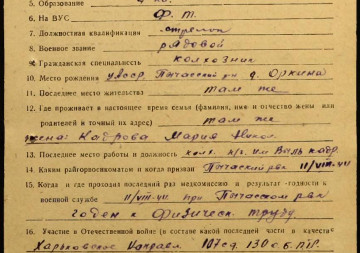 5. Образование
6. На ВУС Ф. т.
7. Должностная квалификация стрелок
8. Военное звание рядовой
9. Гражданская специальность колхозник
10. Место рождения УАССР, Пычасский рн д. Оркина
11. Последнее место жительства там же
12. Где проживает в настоящее время семья (фамилия, имя и отчество жены или
родителей и точный их адрес) там же
жена: Кадрова Мария Никол
13. Последнее место работы и должность колх.
14. Каким райгорвоенкоматом и когда призван Пычасский рвк II/VIII-41.
15. Когда и где проходил последний раз медкомиссию и результат годности к
военной службе II/VIII-41. при Пычасском рвк
годен к физическ. труду
16. Участие в Отечественной войне (в составе какой последней части в качестве
Харьковское направл. 107 сд 130 о.б. ПТР.